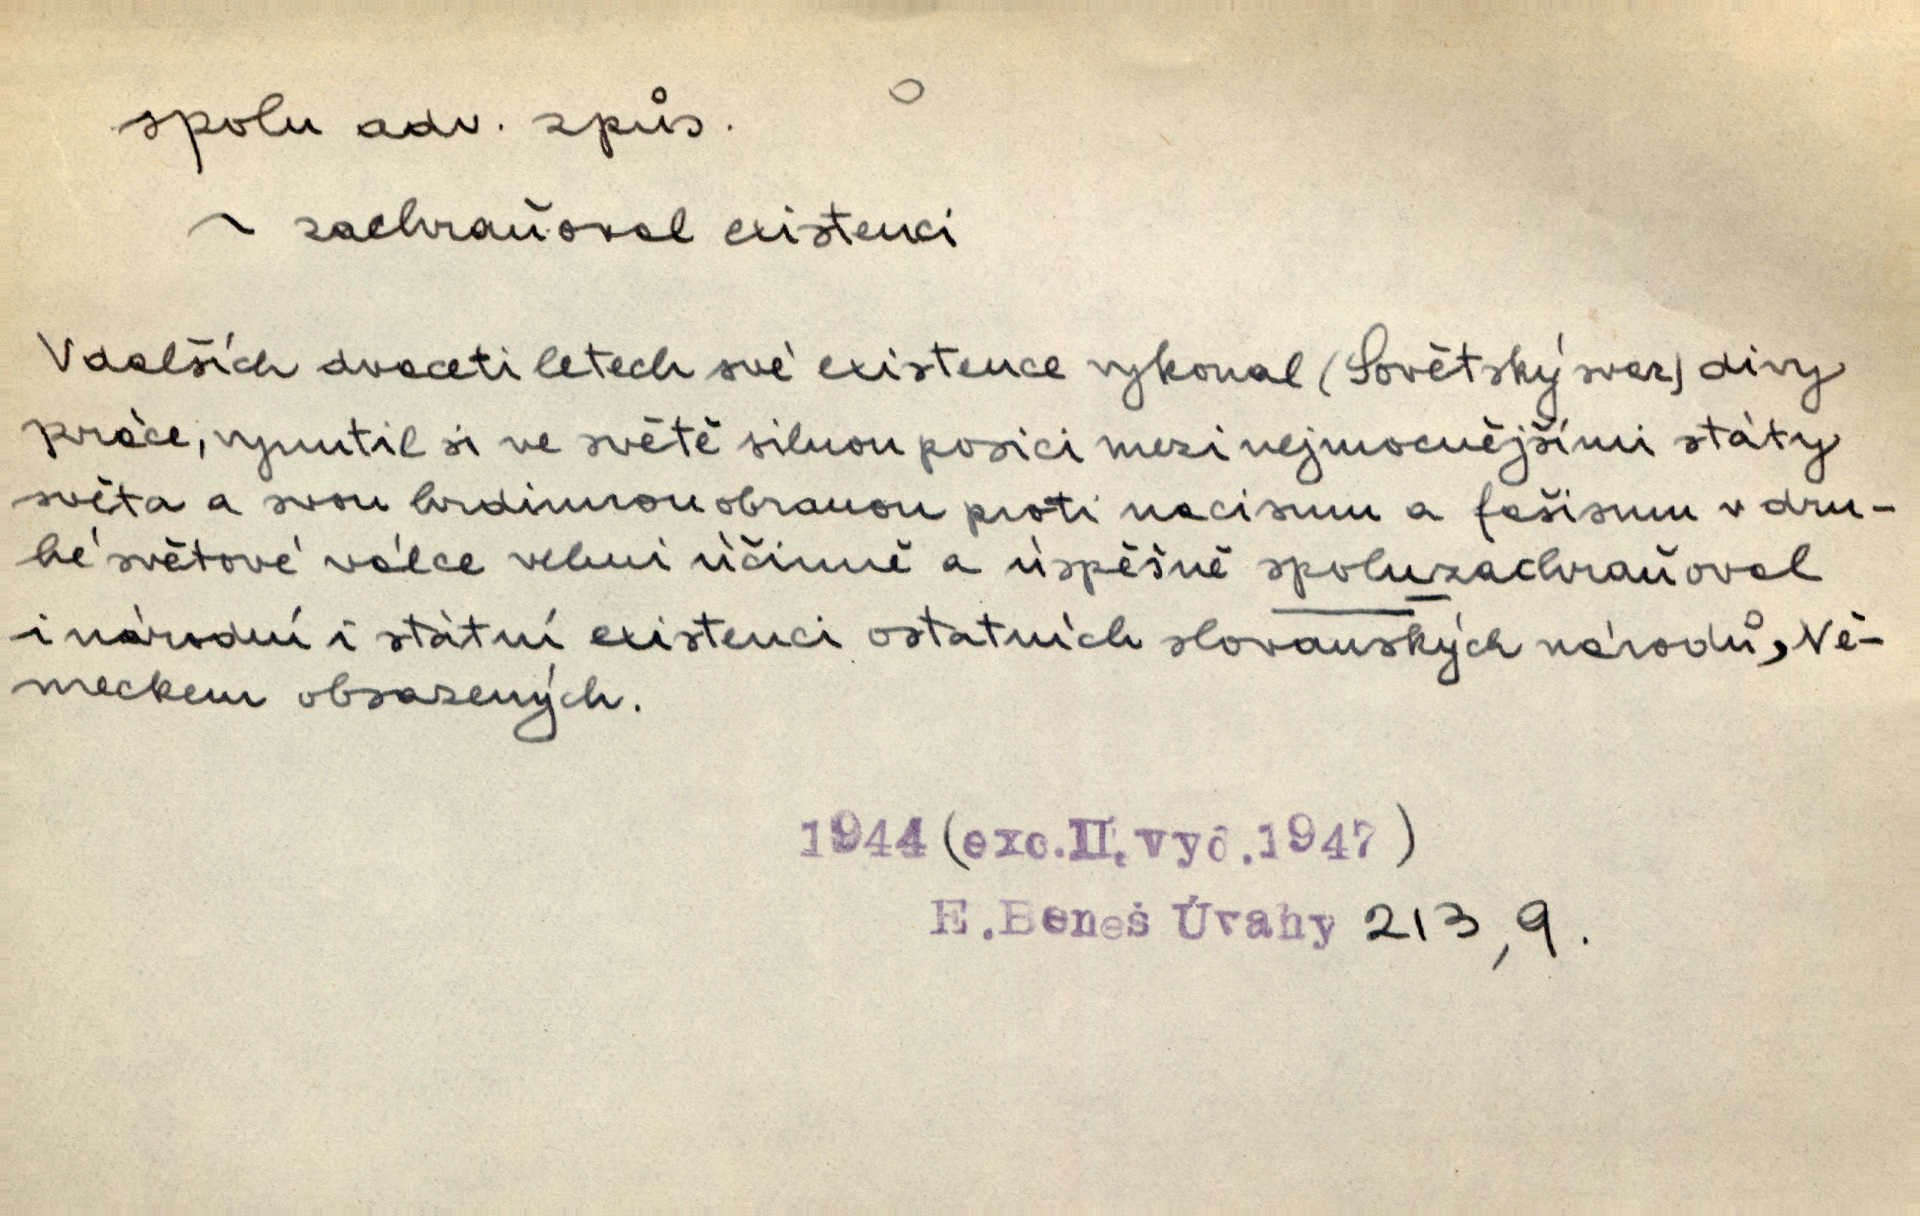 spolu adv. způs.
~ zachraňoval existenci
V dalších dvaceti letech své existence vykonal (Sovětský svaz) divy
práce, vynutil si ve světě silnou posici mezi nejmocnějšími státy
světa a svou hrdinnou obranou proti nacismu a fašismu v dru-
hé světové válce velmi účinně a úspěšně spoluzachraňoval
i národní i státní existenci ostatních slovanských národů, Ně-
meckem obsazených.
1944 (exc. II. vyd. 1947)
E. Beneš Úvahy 213, 9.